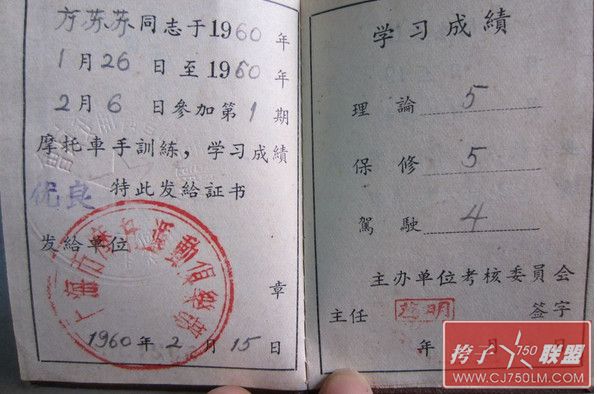 方苏苏同志于1960年
1月26日至1960年
2月6日參加第1期
摩托車手訓練，学习成績
优良 特此发給証书
发給单位
章
1960年2月15日
学习成績
理論 5
保修 5
駕駛 4
主办单位考核委員会
主任 签字
年 月 日
挎子 750 联盟
WWW.CJ750LM.COM